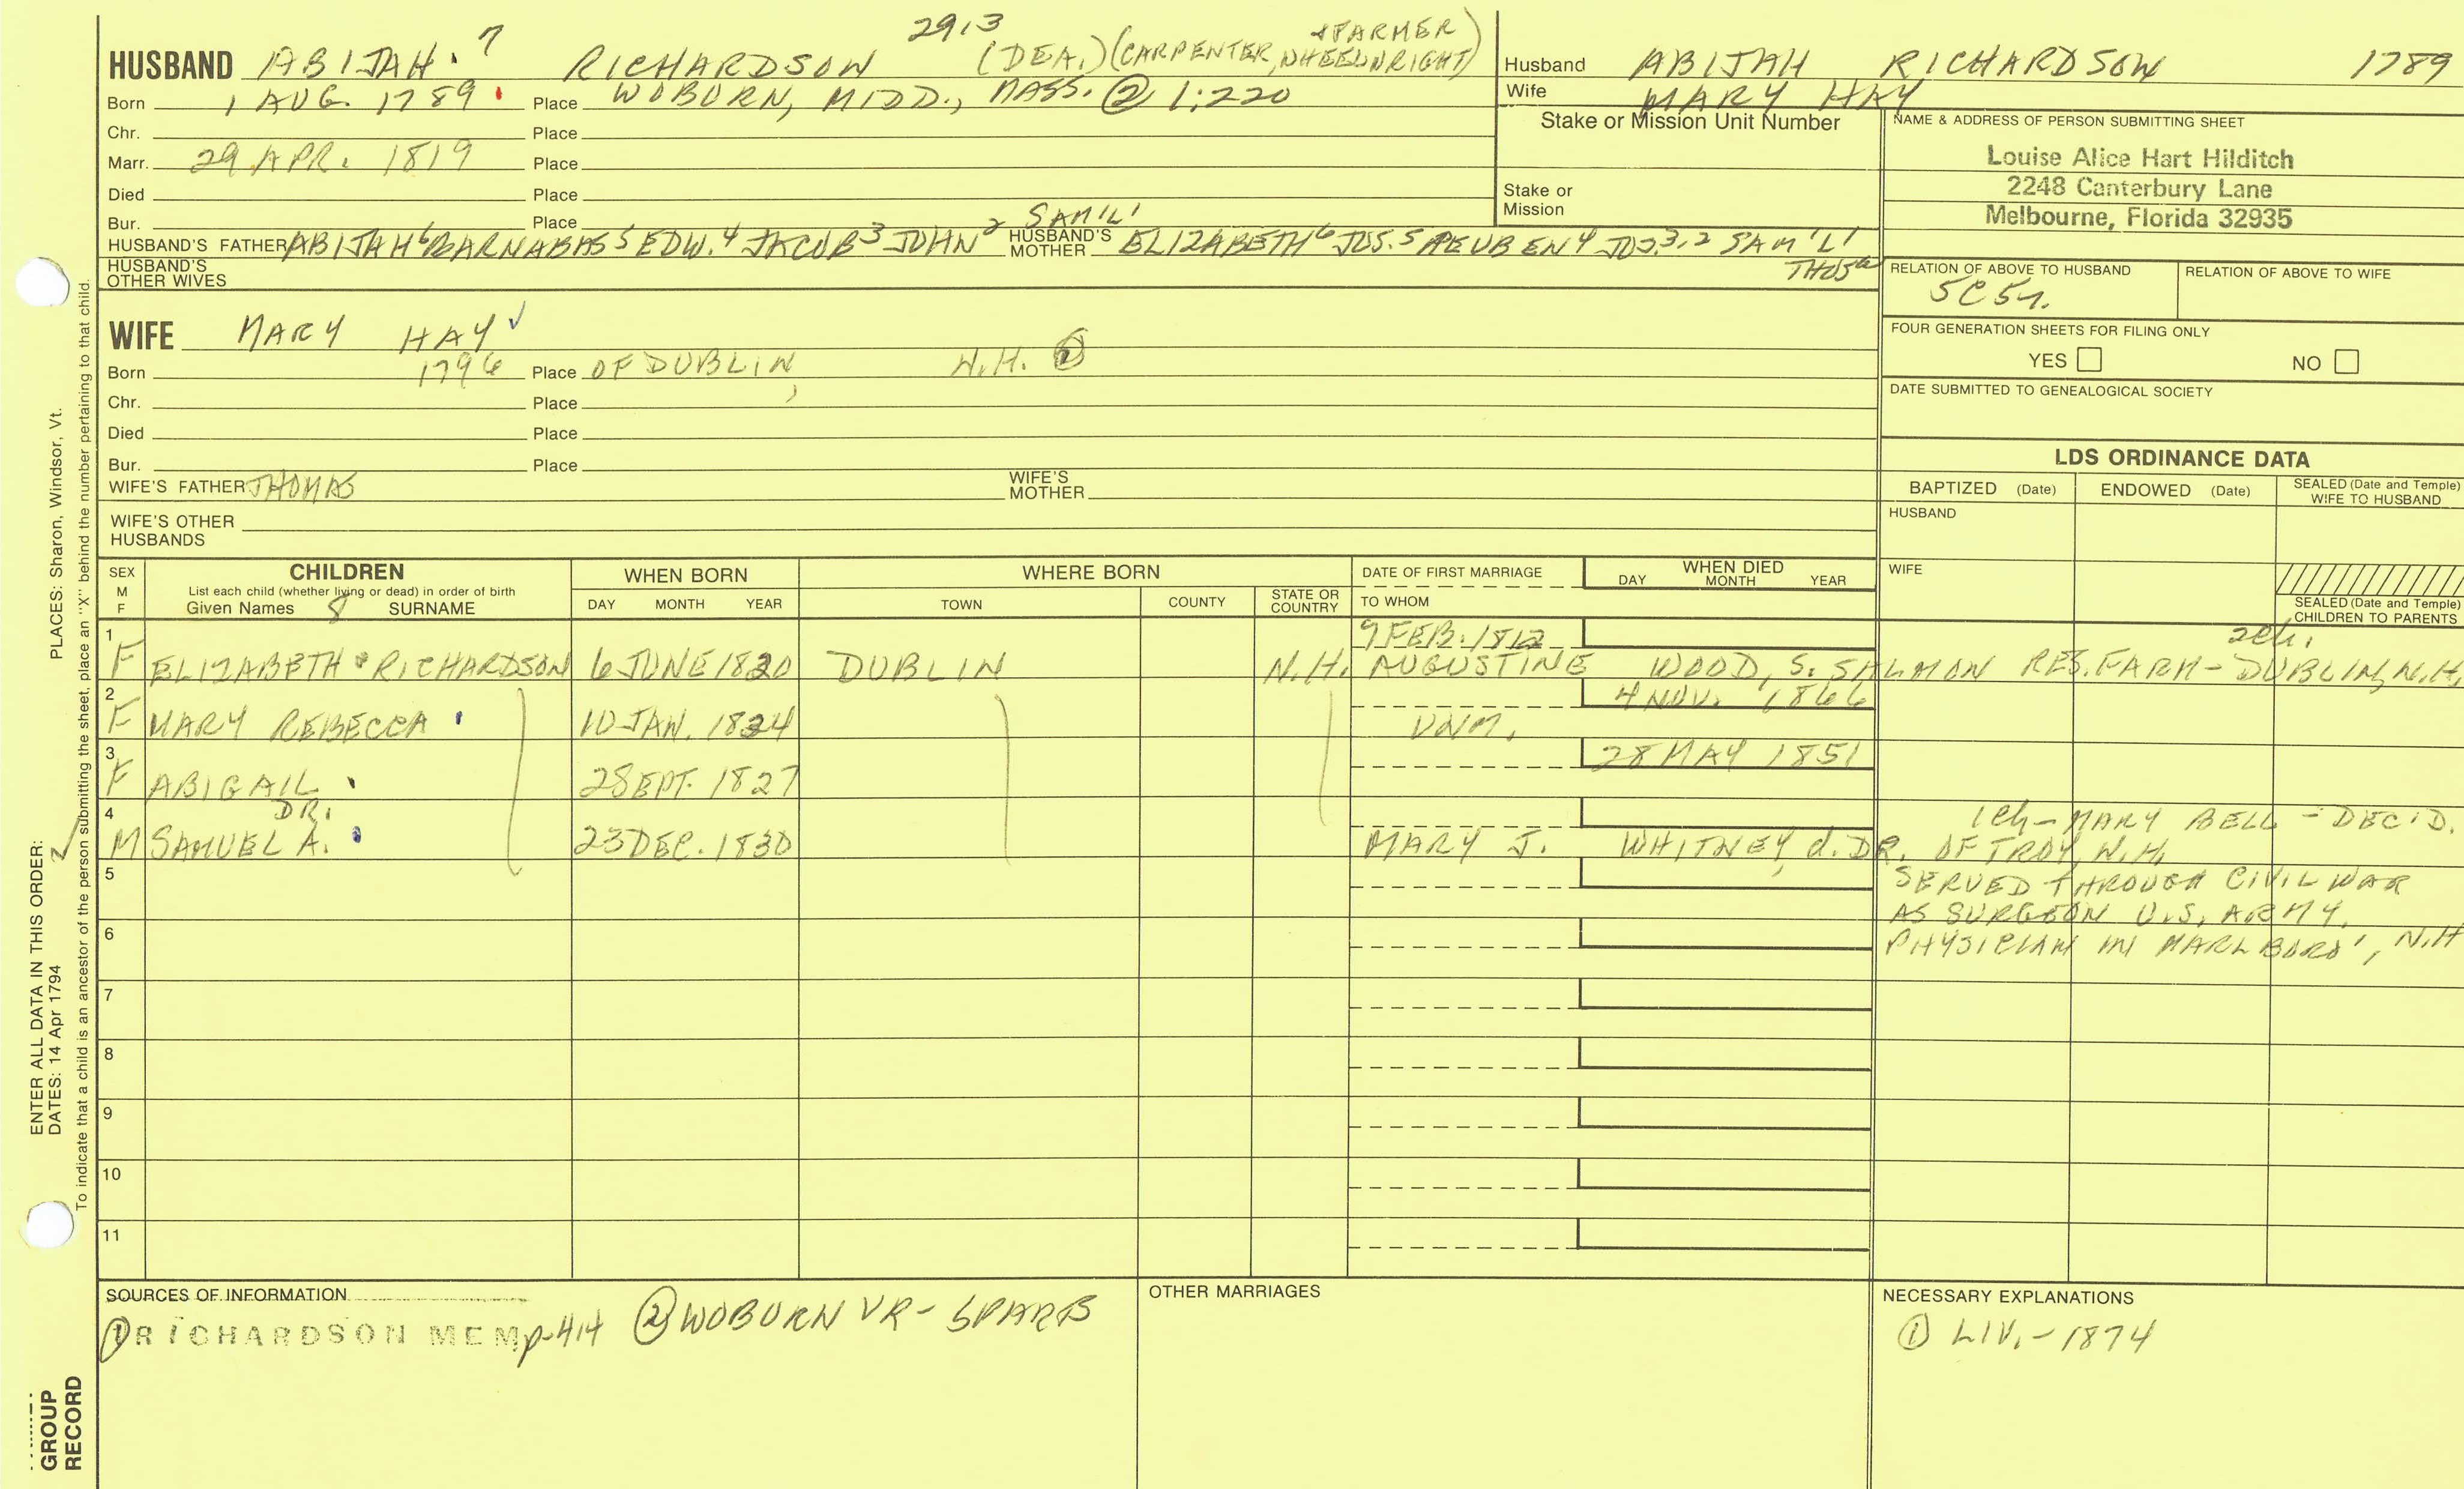 2913 & FARMER
HUSBAND ABIJAH 7 RICHARDSON (DEA.) (CARPENTER, WHEELWRIGHT)
Born 1 AUG. 1789 Place WOBURN, MIDD., MASS. ② 1:220
Chr. Place
Marr. 29 APR. 1819 Place
Died Place
Bur. Place
SAM'L 1
HUSBAND'S FATHER ABIJAH 6 BARNABAS 5 EDW. 4 JACOB 3 JOHN 2 HUSBAND'S MOTHER ELIZABETH 6 JOS. 5 REUBEN 4 JOS. 3,2 SAM'L 1
THOS
HUSBAND'S OTHER WIVES
Husband ABIJAH RICHARDSON 1789
Wife MARY HAY
Stake or Mission Unit Number
Stake or Mission
NAME & ADDRESS OF PERSON SUBMITTING SHEET
Louise Alice Hart Hilditch
2248 Canterbury Lane
Melbourne, Florida 32935
RELATION OF ABOVE TO HUSBAND RELATION OF ABOVE TO WIFE
5C5r.
FOUR GENERATION SHEETS FOR FILING ONLY
YES NO
DATE SUBMITTED TO GENEALOGICAL SOCIETY
WIFE MARY HAY
Born 1796 Place OF DUBLIN, N.H.
Chr. Place
Died Place
Bur. Place
WIFE'S FATHER THOMAS WIFE'S MOTHER
WIFE'S OTHER HUSBANDS
LDS ORDINANCE DATA
BAPTIZED (Date) ENDOWED (Date) SEALED (Date and Temple) WIFE TO HUSBAND
HUSBAND
WIFE
SEALED (Date and Temple) CHILDREN TO PARENTS
SEX M F CHILDREN WHEN BORN WHERE BORN DATE OF FIRST MARRIAGE WHEN DIED
List each child (whether living or dead) in order of birth
Given Names 8 SURNAME DAY MONTH YEAR TOWN COUNTY STATE OR COUNTRY TO WHOM DAY MONTH YEAR
1 9 FEB. 1842 2ch.
F ELIZABETH RICHARDSON 6 JUNE 1820 DUBLIN N.H. AUGUSTINE WOOD, S. SALMON RES. FARM - DUBLIN, N.H.
2 4 NOV. 1866
F MARY REBECCA 10 JAN. 1824 UNM.
3 28 MAY 1851
F ABIGAIL 2 SEPT. 1827
4 DR. 1ch - MARY BELL - DEC'D.
M SAMUEL A. 23 DEC. 1830 MARY J. WHITNEY, d. DR. OF TROY, N.H.
5 SERVED THROUGH CIVIL WAR
AS SURGEON U.S. ARMY.
6 PHYSICIAN IN MARLBORO', N.H
7
8
9
10
11
SOURCES OF INFORMATION
① RICHARDSON MEM p-414 ② WOBURN VR - SPARB
OTHER MARRIAGES
NECESSARY EXPLANATIONS
① LIV. - 1874
ENTER ALL DATA IN THIS ORDER:
DATES: 14 Apr 1794 PLACES: Sharon, Windsor, Vt.
To indicate that a child is an ancestor of the person submitting the sheet, place an "X" behind the number pertaining to that child.
GROUP
RECORD